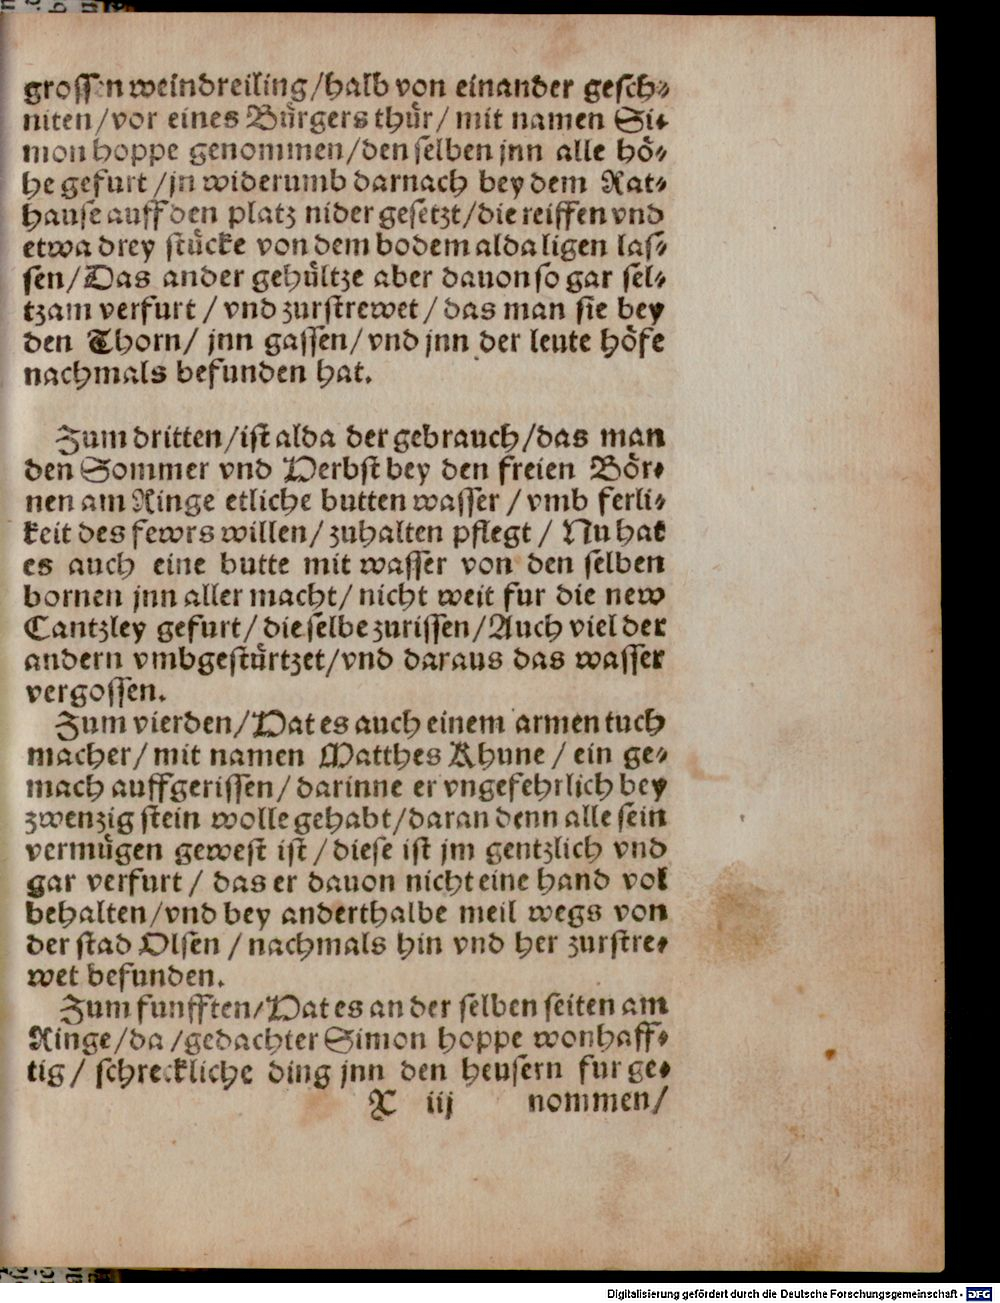 grossen weindreiling/halb von einander gesch⸗
niten/vor eines Bürgers thür/ mit namen Si⸗
mon hoppe genommen/den selben jnn alle hö⸗
he gefurt /jn widerumb darnach bey dem Rat⸗
hause auff den platz nider gesetzt/die reiffen vnd
etwa drey stücke von dem bodem alda ligen las⸗
sen/Das ander gehültze aber dauon so gar sel⸗
tzam verfurt / vnd zurstrewet / das man sie bey
den Thorn/ jnn gassen/ vnd jnn der leute höfe
nachmals befunden hat.
Zum dritten/ist alda der gebrauch/das man
den Sommer vnd Herbst bey den freien Bör⸗
nen am Ringe etliche butten wasser / vmb ferli⸗
keit des fewrs willen/ zuhalten pflegt / Nu hat
es auch eine butte mit wasser von den selben
bornen jnn aller macht/ nicht weit fur die new
Cantzley gefurt/ die selbe zurissen/Auch viel der
andern vmbgestürtzet/vnd daraus das wasser
vergossen.
Zum vierden/Hat es auch einem armen tuch
macher/ mit namen Matthes Khune / ein ge⸗
mach auffgerissen/ darinne er vngefehrlich bey
zwenzig stein wolle gehabt/daran denn alle sein
vermügen gewest ist / diese ist jm gentzlich vnd
gar verfurt / das er dauon nicht eine hand vol
behalten/vnd bey anderthalbe meil wegs von
der stad Olsen / nachmals hin vnd her zurstre⸗
wet befunden.
Zum funfften/Hat es an der selben seiten am
Ringe/da /gedachter Simon hoppe wonhaff⸗
tig/ schreckliche ding jnn den heusern fur ge⸗
X iij nommen/
Digitalisierung gefördert durch die Deutsche Forschungsgemeinschaft - DFG